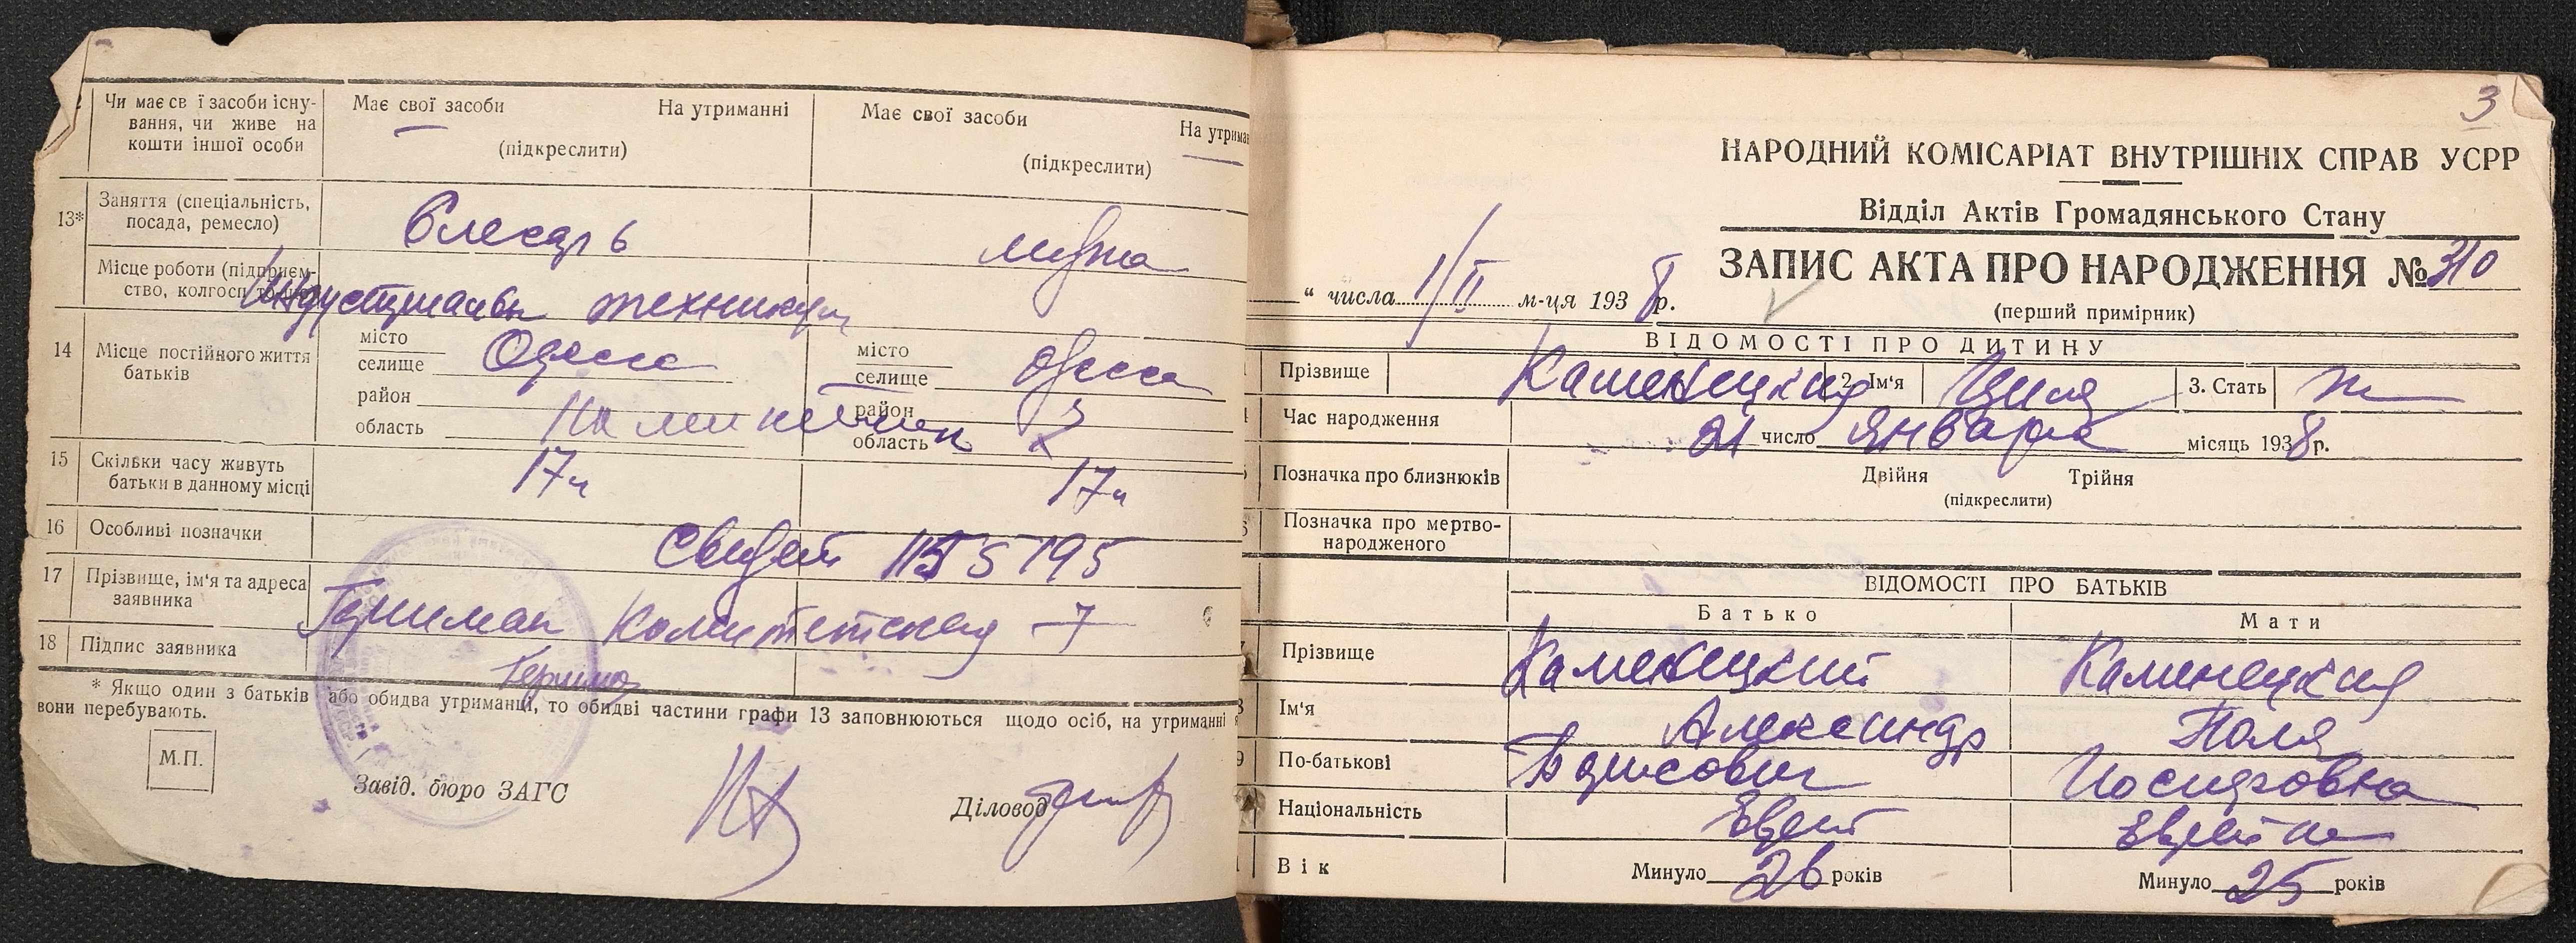 Чи має св ї засоби існу-
вання, чи живе на
кошти іншої особи
Має свої засоби На утриманні
(підкреслити)
Має свої засоби
На утриман
(підкреслити)
13* Заняття (спеціальність,
посада, ремесло)
Слесарь
мужа
Місце роботи (підприєм-
ство, колгосп
техникум
14 Місце постійного життя
батьків
місто
селище Одесса
район
область
місто
селище Одесса
район
область
15 Скільки часу живуть
батьки в данному місці
17 17
16 Особливі позначки
5195
17 Прізвище, ім'я та адреса
заявника
Комитетская 7
18 Підпис заявника
* Якщо один з батьків або обидва утриманці, то обидві частини графи 13 заповнюються щодо осіб, на утриманні
вони перебувають.
М.П.
Завід. бюро ЗАГС
Діловод
3
НАРОДНИЙ КОМІСАРІАТ ВНУТРІШНІХ СПРАВ УСРР
Відділ Актів Громадянського Стану
ЗАПИС АКТА ПРО НАРОДЖЕННЯ № 310
(перший примірник)
" числа 1/II м-ця 1938 р.
ВІДОМОСТІ ПРО ДИТИНУ
Прізвище Каменецкая 2. Ім'я Циля 3. Стать ж
Час народження
21 число января місяць 1938 р.
Позначка про близнюків
Двійня Трійня
(підкреслити)
Позначка про мертво-
народженого
ВІДОМОСТІ ПРО БАТЬКІВ
Батько Мати
Прізвище Каменецкий Каменецкая
Ім'я Александр Поля
По-батькові Борисович Иосифовна
Національність Еврей Еврейка
Вік Минуло 26 років Минуло 25 років